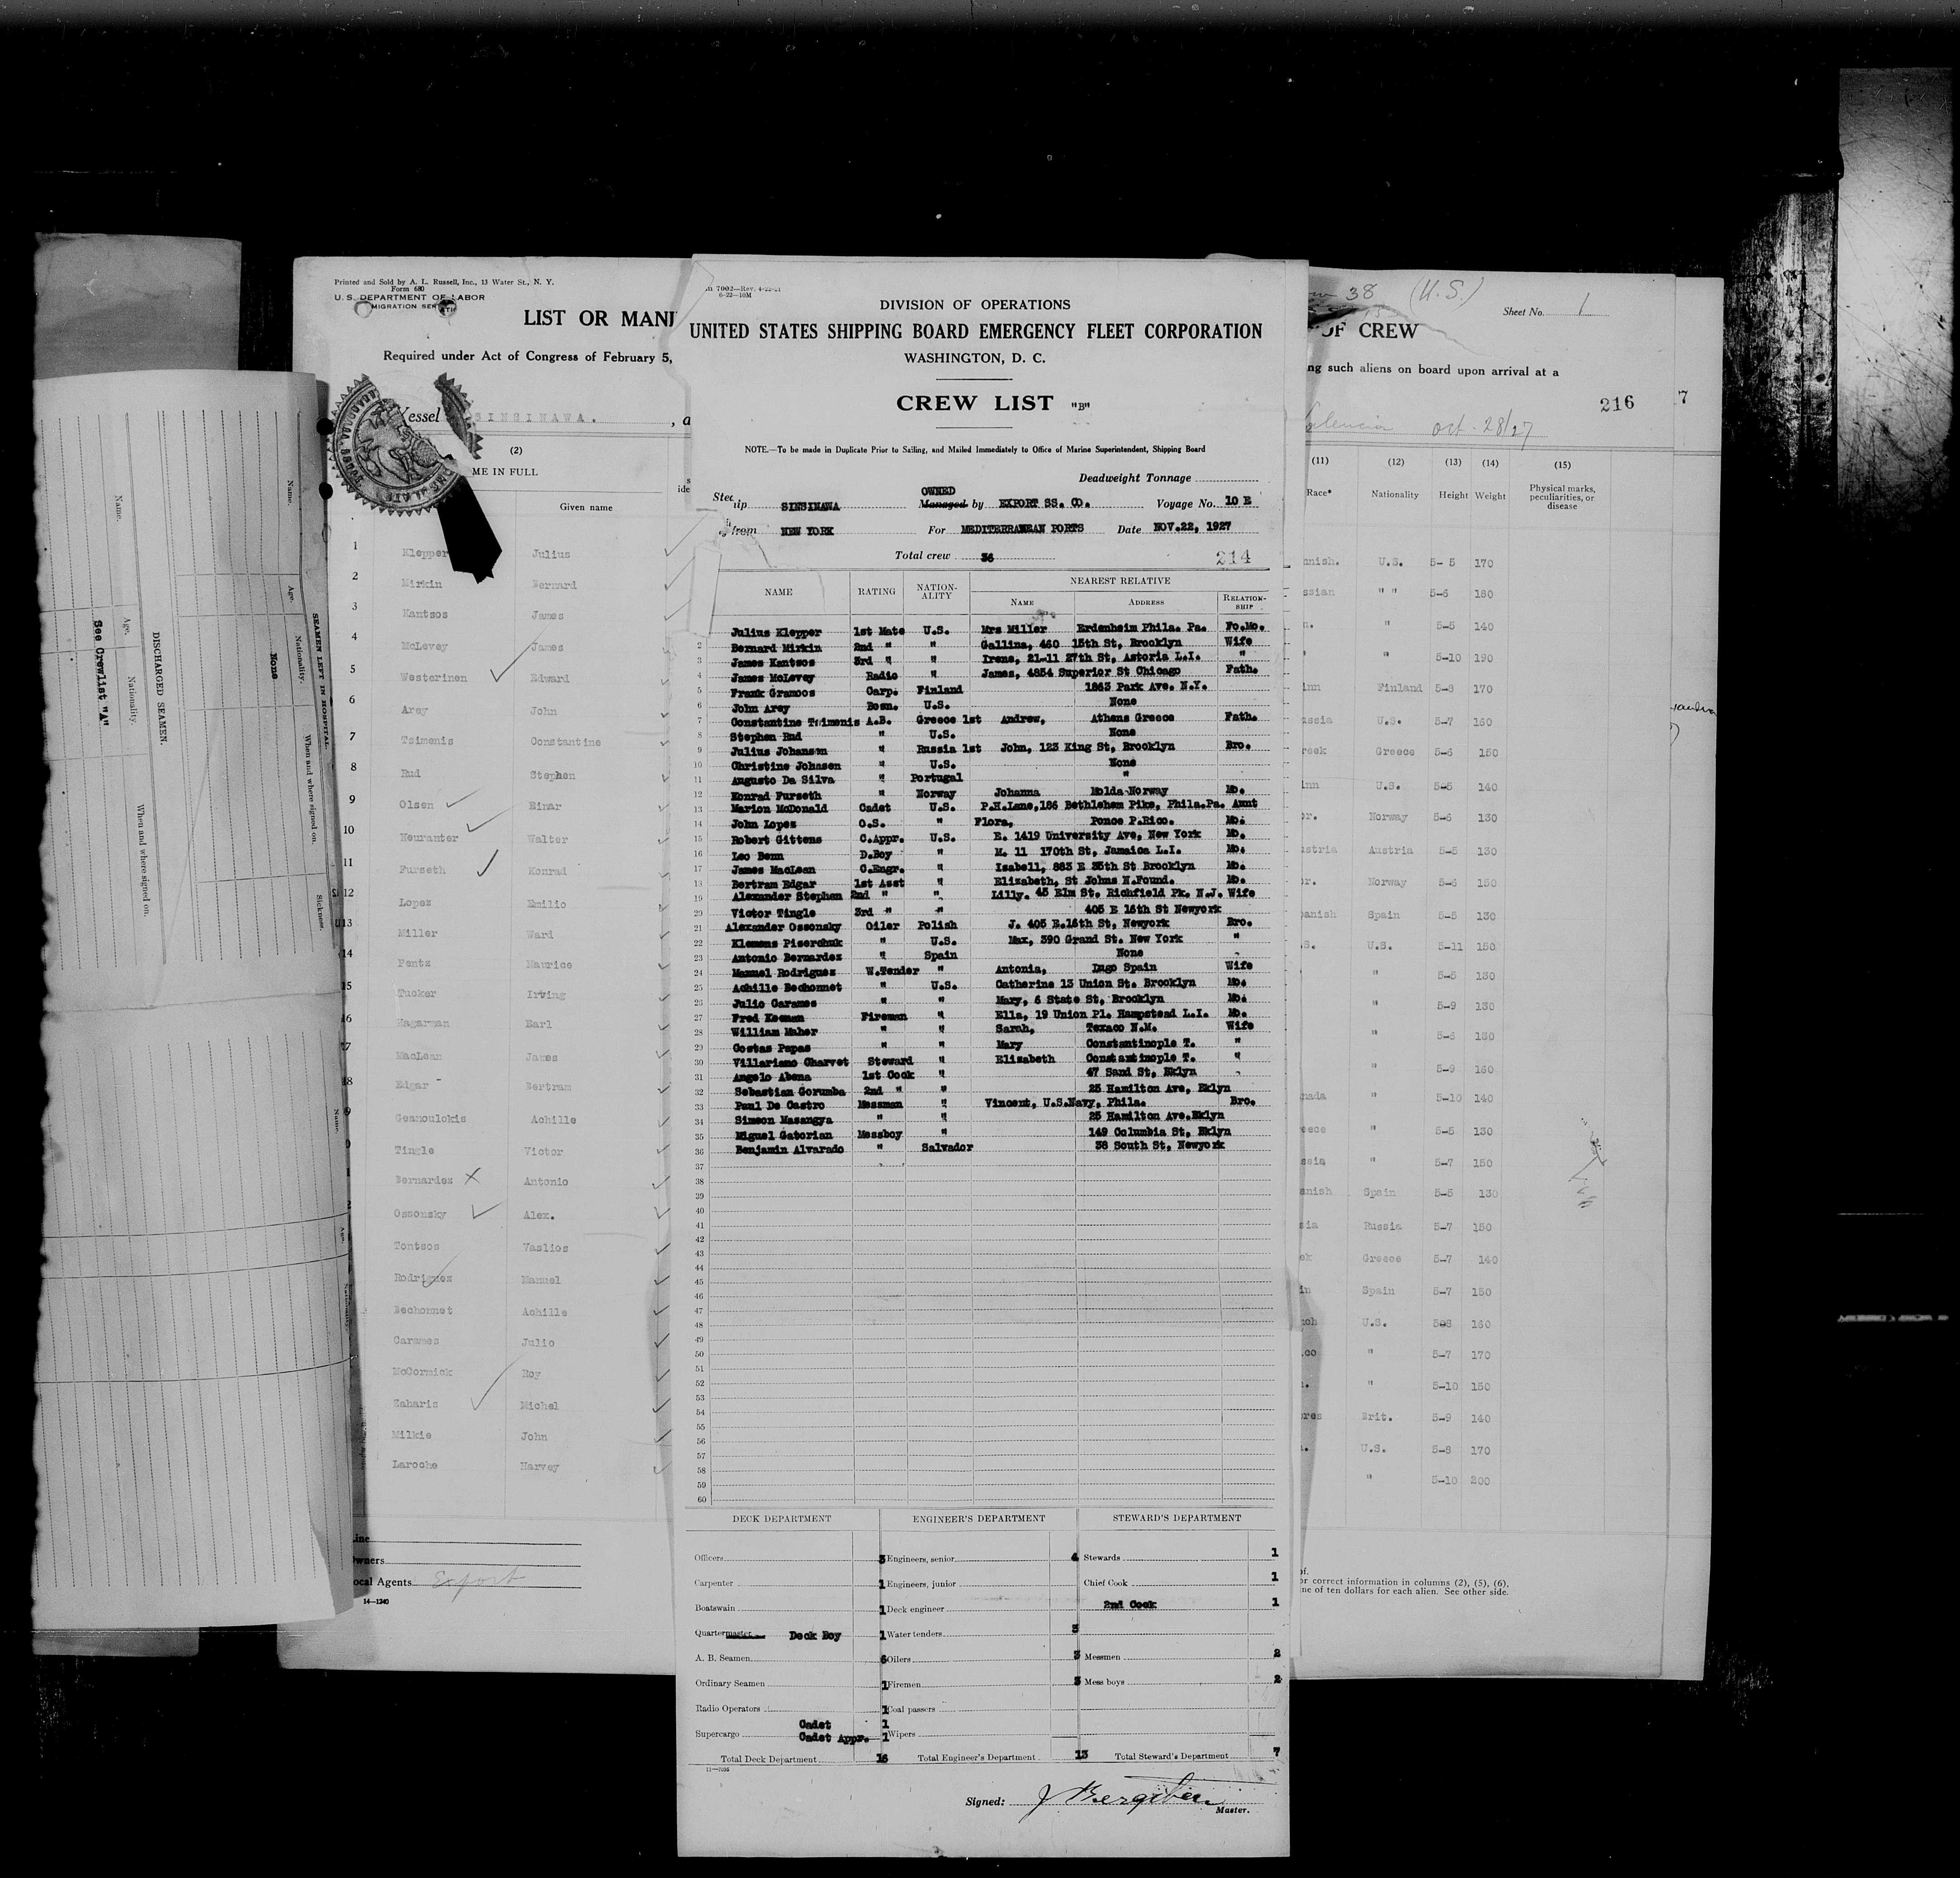 Name.
Age.
Nationality.
When and where signed on.
Sickness.
SEAMEN LEFT IN HOSPITAL.
None
DISCHARGED SEAMEN.
Name.
Age.
Nationality.
When and where signed on.
See Crewlist "A"
Printed and Sold by A. L. Russell, Inc., 13 Water St., N. Y.
Form 680
U. S. DEPARTMENT OF LABOR
LIST OR MANI
Required under Act of Congress of February 5,
Vessel SINSINAWA. , a
(2)
ME IN FULL
Given name
1 Klepper Julius
2 Mirkin Bernard
3 Kantsos James
4 McLevey James
5 Westerinen Edward
6 Arey John
7 Tsimenis Constantine
8 Rud Stephen
9 Olsen Einar
10 Neuranter Walter
11 Furseth Konrad
12 Lopez Emilio
13 Miller Ward
14 Pentz Maurice
15 Tucker Irving
16 Hagarman Earl
17 MacLean James
18 Edgar Bertram
9 Geanoulokis Achille
0 Tingle Victor
1 Bernardez Antonio
2 Ossonsky Alex.
Tontsos Vaslios
Rodriguez Manuel
Bechonnet Achille
Carames Julio
McCormick Roy
Zaharis Michel
Milkie John
Laroche Harvey
Line
Owners
ocal Agents Export
14—1240
7002—Rev. 4-22-21
6-22—10M
DIVISION OF OPERATIONS
UNITED STATES SHIPPING BOARD EMERGENCY FLEET CORPORATION
WASHINGTON, D. C.
CREW LIST "B"
NOTE.—To be made in Duplicate Prior to Sailing, and Mailed Immediately to Office of Marine Superintendent, Shipping Board
Deadweight Tonnage
OWNED
ip SINSINAWA Managed by EXPORT SS. CO. Voyage No. 10 E
from NEW YORK For MEDITERRANEAN PORTS Date NOV.22, 1927
Total crew 36 214
NAME RATING NATION-ALITY NEAREST RELATIVE
NAME ADDRESS RELATION-SHIP
Julius Klepper 1st Mate U.S. Mrs Miller Erdenheim Phila. Pa. Fo.Mo.
2 Bernard Mirkin 2nd " " Gallina, 460 15th St, Brooklyn Wife
3 James Kantsos 3rd " " Irene, 21-11 27th St, Astoria L.I. "
4 James McLevey Radio " James, 4854 Superior St Chicago Fath.
5 Frank Gramoos Carp. Finland 1863 Park Ave. N.Y.
6 John Arey Bosn. U.S. None
7 Constantine Tsimenis A.B. Greece 1st Andrew, Athens Greece Fath.
8 Stephen Rud " U.S. None
9 Julius Johansen " Russia 1st John, 123 King St, Brooklyn Bro.
10 Christine Johasen " U.S. None
11 Augusto Da Silva " Portugal "
12 Konrad Furseth " Norway Johanna Molda Norway Mo.
13 Marion McDonald Cadet U.S. P.H.Lane,186 Bethlehem Pike, Phila.Pa. Aunt
14 John Lopez O.S. " Flora, Ponce P.Rico. Mo.
15 Robert Gittens C.Appr. U.S. E. 1419 University Ave, New York Mo.
16 Leo Benn D.Boy " M. 11 170th St, Jamaica L.I. Mo.
17 James MacLean C.Engr. " Isabell, 883 E 35th St Brooklyn Mo.
18 Bertram Edgar 1st Asst " Elizabeth, St Johns N.Found. Mo.
19 Alexander Stephen 2nd " " Lilly. 45 Elm St. Richfield Pk. N.J. Wife
20 Victor Tingle 3rd " " 405 E 16th St Newyork
21 Alexander Ossonsky Oiler Polish J. 405 E.16th St, Newyork Bro.
22 Klemens Piserchuk " U.S. Max, 390 Grand St. New York "
23 Antonio Bernardez " Spain None
24 Manuel Rodriguez W.Tender " Antonia, Lugo Spain Wife
25 Achille Bechonnet " U.S. Catherine 13 Union St. Brooklyn Mo.
26 Julio Carames " " Mary, 6 State St, Brooklyn Mo.
27 Fred Keenan Fireman " Ella, 19 Union Pl. Hampstead L.I. Mo.
28 William Maher " " Sarah, Texaco N.M. Wife
29 Costas Papas " " Mary Constantinople T. "
30 Villariano Charvet Steward " Elizabeth Constantinople T. "
31 Angelo Abena 1st Cook " 47 Sand St, Bklyn
32 Sebastian Gorumba 2nd " " 25 Hamilton Ave, Bklyn
33 Paul De Castro Messman " Vincent, U.S.Navy, Phila. Bro.
34 Simeon Masangya " " 25 Hamilton Ave.Bklyn
35 Miguel Gatorian Messboy " 149 Columbia St, Bklyn
36 Benjamin Alvarado " Salvador 38 South St, Newyork
37
38
39
40
41
42
43
44
45
46
47
48
49
50
51
52
53
54
55
56
57
58
59
60
DECK DEPARTMENT ENGINEER'S DEPARTMENT STEWARD'S DEPARTMENT
Officers 3 Engineers, senior 4 Stewards 1
Carpenter 1 Engineers, junior Chief Cook 1
Boatswain 1 Deck engineer 2nd Cook 1
Quartermaster Deck Boy 1 Water tenders 3
A. B. Seamen 6 Oilers 3 Messmen 2
Ordinary Seamen 1 Firemen 3 Mess boys 2
Radio Operators 1 Coal passers
Cadet 1
Supercargo Cadet Appr. 1 Wipers
Total Deck Department 16 Total Engineer's Department 13 Total Steward's Department 7
11—7036
Signed:
Master.
38 (U.S.)
Sheet No. 1
OF CREW
ng such aliens on board upon arrival at a
216 7
Valencia Oct. 28/27
(11) (12) (13) (14) (15)
Race* Nationality Height Weight Physical marks, peculiarities, or disease
anish. U.S. 5-5 170
ssian " " 5-6 160
n. " 5-5 140
" " 5-10 190
inn Finland 5-8 170
ussia U.S. 5-7 160
reek Greece 5-6 150
inn U.S. 5-5 140
or. Norway 5-6 130
ustria Austria 5-5 130
or. Norway 5-6 150
panish Spain 5-5 130
.S. U.S. 5-11 150
" 5-5 130
" 5-9 130
" 5-6 130
" 5-9 160
nada " 5-10 140
eece " 5-5 130
ssia " 5-7 150
anish Spain 5-5 130
sia Russia 5-7 150
ek Greece 5-7 140
in Spain 5-7 150
nch U.S. 5-8 160
.co " 5-7 170
. " 5-10 150
ores Brit. 5-9 140
. U.S. 5-8 170
" 5-10 200
of.
or correct information in columns (2), (5), (6),
ne of ten dollars for each alien. See other side.